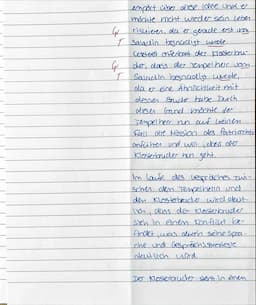 empört über diese Idee und er
möchte nicht wieder sein Leben
riskieren, da er gerade erst von
Saladin begnadigt wurde.
der Klosterbru-
der, dass der Tempelherr von
Saladin begnadigt wurde,
da er eine Ähnlichkeit mit
dessen Bruder habe. Durch
diesen Grund möchte der
Tempelherr nun auf keinen
Fall die Mission des Patriarchen
ausführen und will, dass der
Klosterbruder nun geht.
Im Laufe des Gespräches zwi-
schen dem Tempelherrn und
dem Klosterbruder wird deut-
lich, dass der Klosterbruder
sich in einem Konflikt be-
findet, was durch seine Spra-
che und Gesprächsstrategie
deutlich wird.
Der Klosterbruder in einem